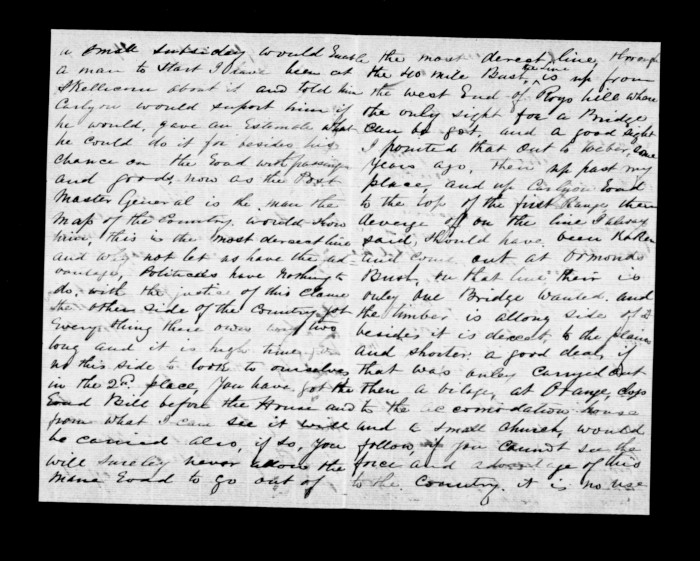 a small subsiday would Enable
a man to start I have been at
Skellicorn about it and told him
Carlyon would support him if
he would, gave an Estemate what
he could do it for besides his
chance on the Road with passengers
and goods, now as the Post
Master General is the man the
map of the Country would show
him, this is the most derect line
and why not let us have the ad=
vantage, Politicks have nothing to
do, with the justice of this Clame
the other side of the Country got
Every thing there own way two
long and it is high time for
us this side to look to ourselves
in the 2nd. place, You have got the
Road Bill before the House and
from what I can see it will
be carried also, if so, You
will sureley never alow the
mane Road to go out of
the most derect line, through
the 40 mile Bush, the line is up from
the west End of Roys hill where
the only sight for a Bridge
can be got, and a good sight
I pointed that out to Weber, some
Years ago, then up past my
place, and up Carlyon Road
to the top of the first Range, then
deverge off on the line I always
said, should have been taken
and come out at Ormonds
Bush, on that line their is
only one Bridge wanted, and
the timber is allong side of it
besides it is decect, to the plains
and shorter a good deal, if
that was onley carryed out
then a vilege, at Orange, close
to the accomodation house
and a small church, would
follow, if you cannot see the
force and advantage of this
to the country. it is no use